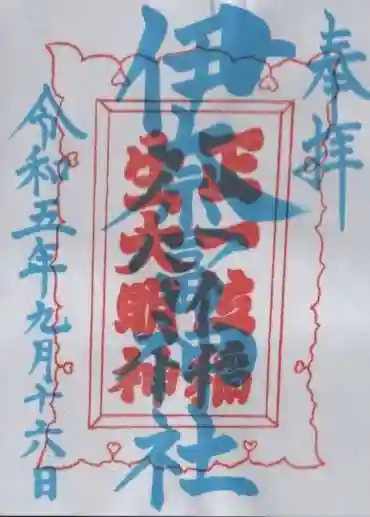 奉拝
伊奈冨神社
正一位稲
生大明神
令和五年九月十六日